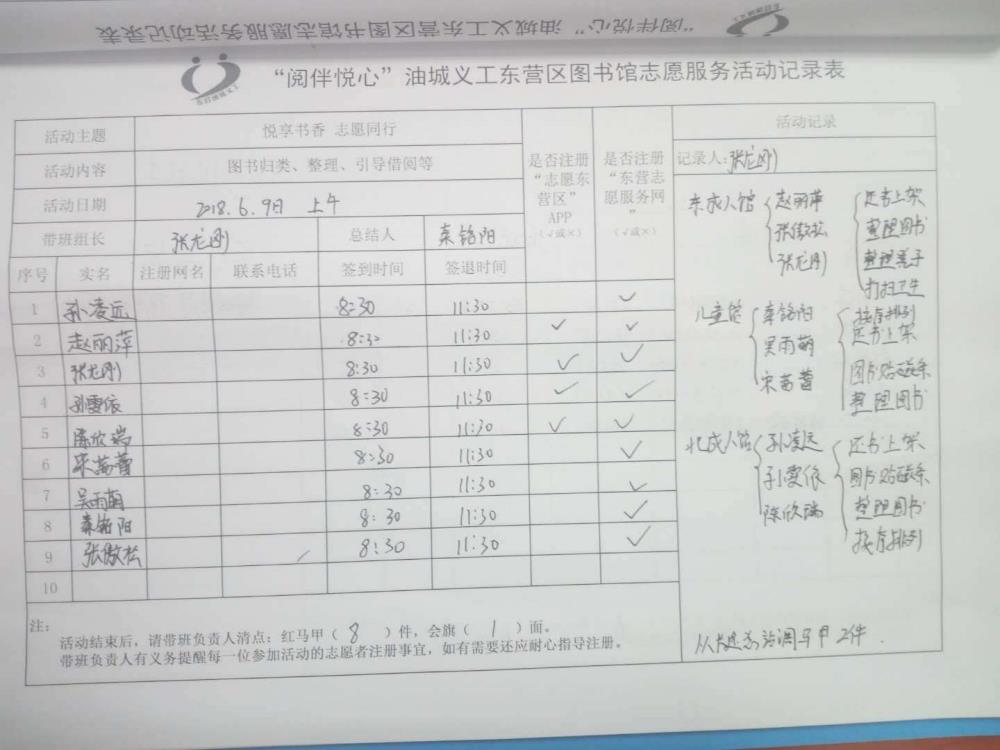 “阅伴悦心”油城义工东营区图书馆志愿服务活动记录表
“阅伴悦心”油城义工东营区图书馆志愿服务活动记录表
活动主题 悦享书香 志愿同行
活动内容 图书归类、整理、引导借阅等
活动日期 2018.6.9日 上午
带班组长 张龙刚 总结人 秦铭阳
是否注册“志愿东营区”APP（√或×）
是否注册“东营志愿服务网”（√或×）
序号 实名 注册网名 联系电话 签到时间 签退时间
1 孙凌远 8:30 11:30 ✓
2 赵丽萍 8:30 11:30 ✓ ✓
3 张龙刚 8:30 11:30 ✓ ✓
4 孙雯依 8:30 11:30 ✓ ✓
5 陈欣瑞 8:30 11:30 ✓ ✓
6 宋苗蕾 8:30 11:30 ✓
7 吴雨萌 8:30 11:30 ✓
8 秦铭阳 8:30 11:30 ✓
9 张傲松 8:30 11:30 ✓
10
注：
活动结束后，请带班负责人清点：红马甲（8）件，会旗（1）面。
带班负责人有义务提醒每一位参加活动的志愿者注册事宜，如有需要还应耐心指导注册。
活动记录
记录人：张龙刚
东成人馆 赵丽萍 还书上架
张傲松 整理图书
张龙刚 整理桌子
打扫卫生
儿童馆 秦铭阳 按序排列
还书上架
吴雨萌 图书贴磁条
宋苗蕾 整理图书
北成人馆 孙凌远 还书上架
孙雯依 图书贴磁条
陈欣瑞 整理图书
按序排列
马甲2件.